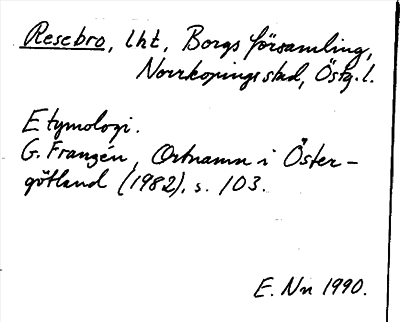 Resebro, lht, Borgs församling,
Norrköpings stad, Östg. l.
Etymologi.
G. Franzén, Ortnamn i Öster-
götland (1982), s. 103.
E. Nn 1990.